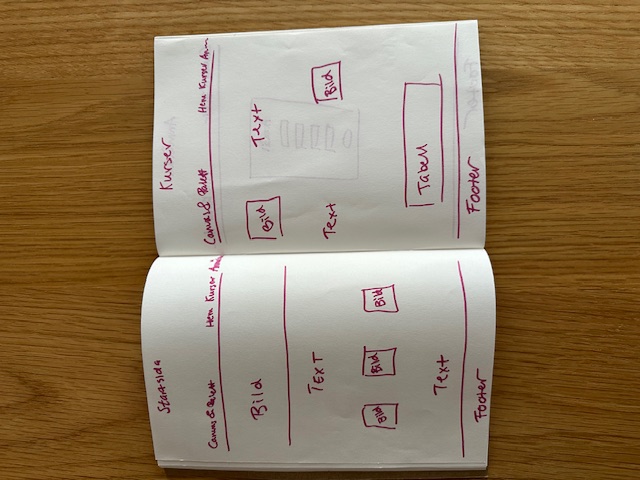 Startsida
Canvas & Palett Hem Kurser
Bild
TEXT
Bild Bild Bild
Text
Footer
Kurser
Canvas & Palett Hem Kurser
Bild Text
Text Bild
Tabell
Footer